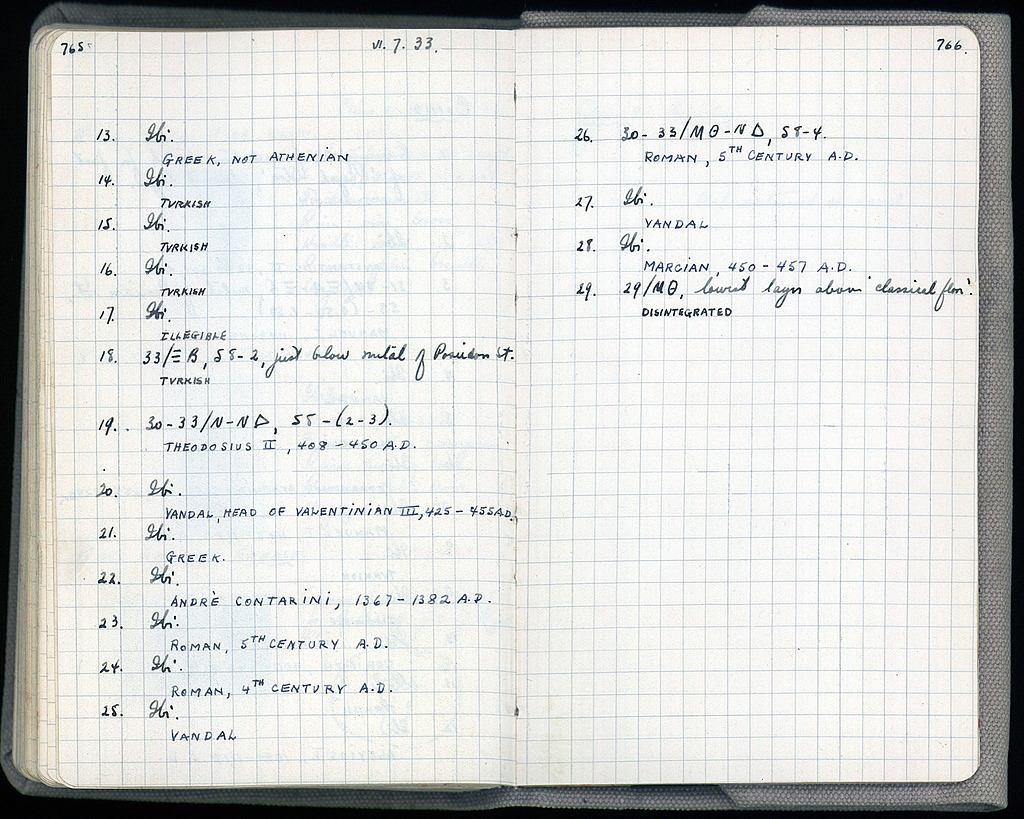 765
VI. 7. 33.
13. Ibi.
GREEK, NOT ATHENIAN
14. Ibi.
TURKISH
15. Ibi.
TURKISH
16. Ibi.
TURKISH
17. Ibi.
ILLEGIBLE
18. 33/Ξ B, S8-2, just below metal of Poseidon St.
TURKISH
19. 30-33/N-NΔ, S8-(2-3).
THEODOSIUS II, 408-450 A.D.
20. Ibi.
VANDAL, HEAD OF VALENTINIAN III, 425-455 A.D.
21. Ibi.
GREEK.
22. Ibi.
ANDRÈ CONTARINI, 1367-1382 A.D.
23. Ibi.
ROMAN, 5TH CENTURY A.D.
24. Ibi.
ROMAN, 4TH CENTURY A.D.
25. Ibi.
VANDAL
766.
26. 30-33/MΘ-NΔ, S8-4.
ROMAN, 5TH CENTURY A.D.
27. Ibi.
VANDAL
28. Ibi.
MARCIAN, 450-457 A.D.
29. 29/MΘ, lowest layer above 'classical floor'.
DISINTEGRATED